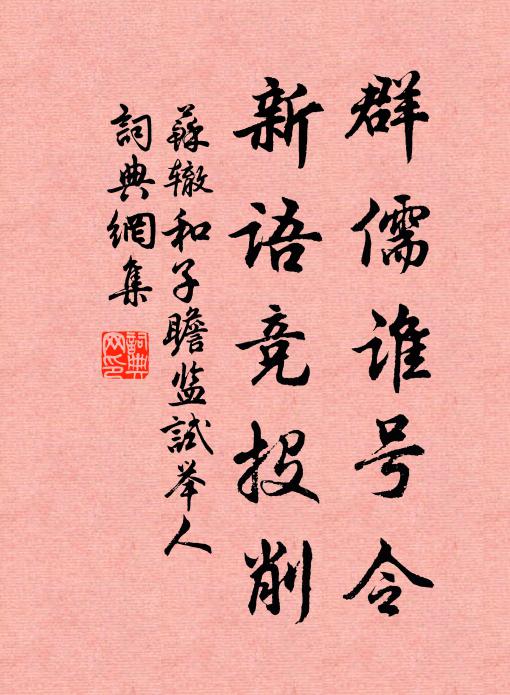 群儒谁号令
新语竞投削
蘇辙和子瞻监試举人
詞典網集
詞典网印